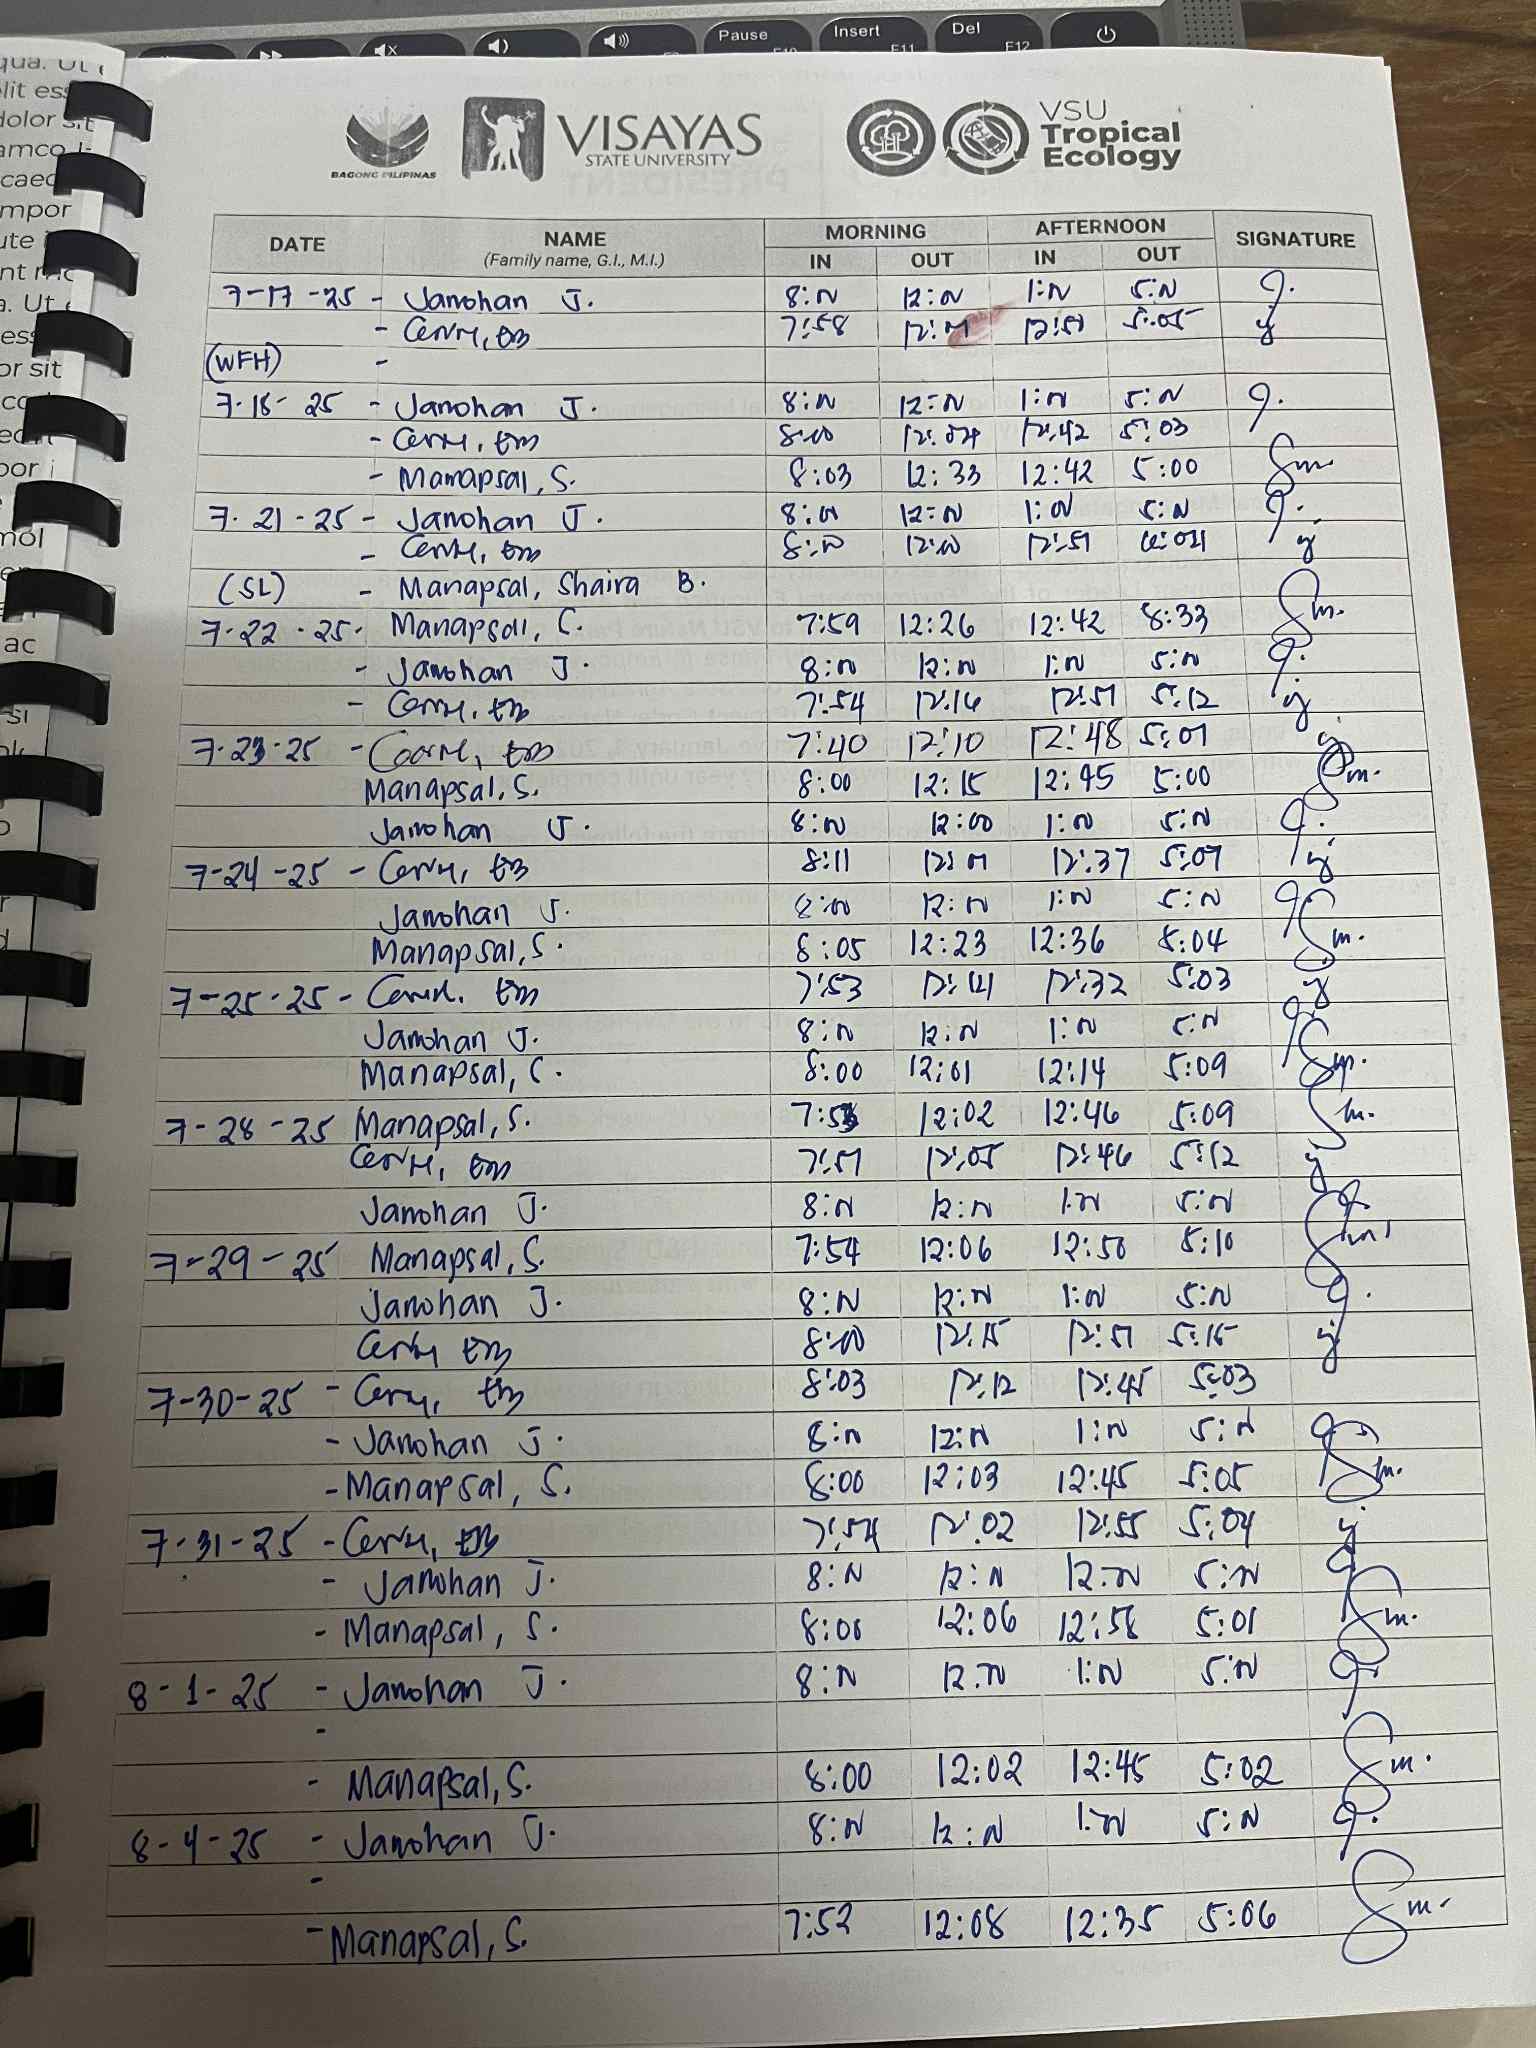 Pause Insert Del
F10 F11 F12
BAGONG PILIPINAS
VISAYAS
STATE UNIVERSITY
VSU
Tropical
Ecology
DATE NAME MORNING AFTERNOON SIGNATURE
(Family name, G.I., M.I.) IN OUT IN OUT
7-17-25 - Janohan J. 8:00 12:00 1:00 5:00
- 7:58 5:05
(WFH) -
7-18-25 - Janohan J. 8:00 12:00 1:00 5:00
- 8:00 12:04 12:42 5:03
- Manapsal, S. 8:03 12:33 12:42 5:00
7-21-25 - Janohan J. 8:00 12:00 1:00 5:00
- 8:00 12:00 12:51
(SL) - Manapsal, Shaira B.
7-22-25 - Manapsal, S. 7:59 12:26 12:42 5:33
- Janohan J. 8:00 12:00 1:00 5:00
- 7:54 12:16 12:51 5:12
7-23-25 - 7:40 12:10 12:48 5:01
Manapsal, S. 8:00 12:15 12:45 5:00
Janohan J. 8:00 12:00 1:00 5:00
7-24-25 - 8:11 12:01 12:37 5:07
Janohan J. 8:00 12:00 1:00 5:00
Manapsal, S. 8:05 12:23 12:36 5:04
7-25-25 - 7:53 12:32 5:03
Janohan J. 8:00 12:00 1:00 5:00
Manapsal, S. 8:00 12:01 12:14 5:09
7-28-25 Manapsal, S. 12:02 12:46 5:09
7:51 12:05 12:46 5:12
Janohan J. 8:00 12:00 1:00 5:00
7-29-25 Manapsal, S. 7:54 12:06 12:50 5:10
Janohan J. 8:00 12:00 1:00 5:00
8:00 12:15 12:51 5:15
7-30-25 - 8:03 12:12 12:45 5:03
- Janohan J. 8:00 12:00 1:00 5:00
- Manapsal, S. 8:00 12:03 12:45 5:05
7-31-25 - 7:54 12:02 12:55 5:04
- Janohan J. 8:00 12:00 12:00 5:00
- Manapsal, S. 8:00 12:06 12:58 5:01
8-1-25 - Janohan J. 8:00 12:00 1:00 5:00
-
- Manapsal, S. 8:00 12:02 12:45 5:02
8-4-25 - Janohan J. 8:00 12:00 1:00 5:00
-
- Manapsal, S. 7:52 12:08 12:35 5:06